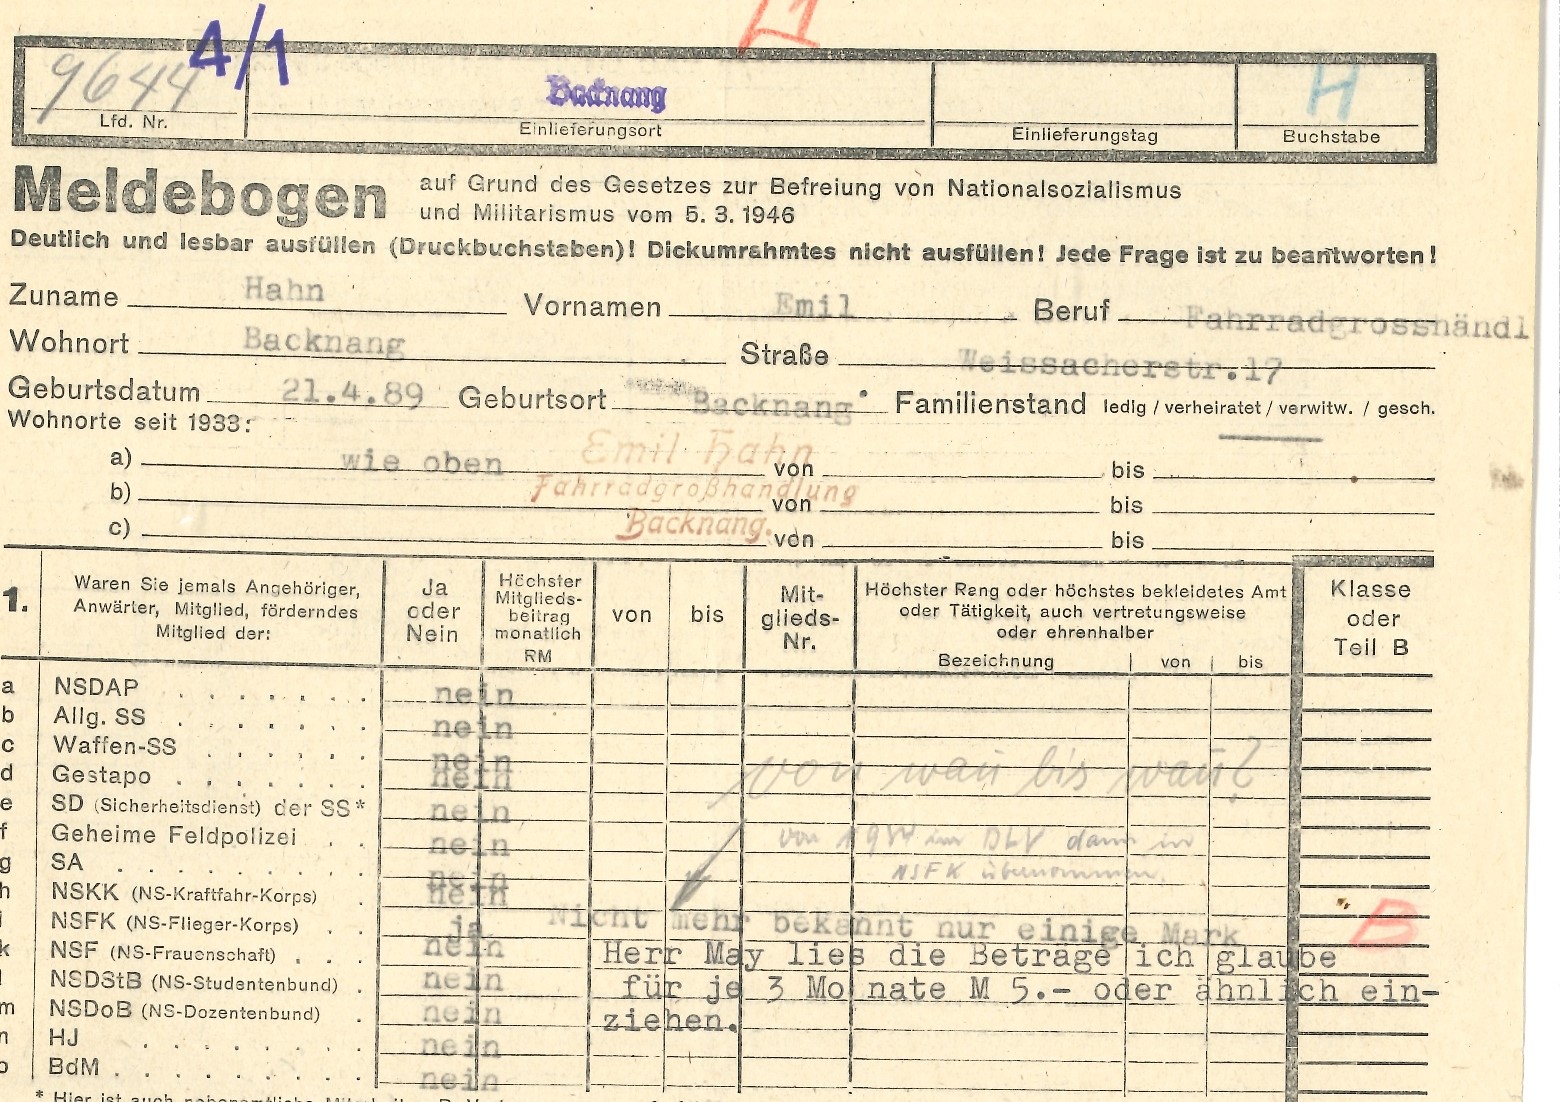 4/1
9644
Lfd. Nr.
Backnang
Einlieferungsort
Einlieferungstag
H
Buchstabe
Meldebogen
auf Grund des Gesetzes zur Befreiung von Nationalsozialismus
und Militarismus vom 5. 3. 1946
Deutlich und lesbar ausfüllen (Druckbuchstaben)! Dickumrahmtes nicht ausfüllen! Jede Frage ist zu beantworten!
Zuname Hahn Vornamen Emil Beruf Fahrradgrosshändl
Wohnort Backnang Straße Weissacherstr.17
Geburtsdatum 21.4.89 Geburtsort Backnang Familienstand ledig / verheiratet / verwitw. / gesch.
Wohnorte seit 1933:
Emil Hahn
Fahrradgroßhandlung
Backnang.
a) wie oben von bis
b) von bis
c) von bis
1.
Waren Sie jemals Angehöriger,
Anwärter, Mitglied, förderndes
Mitglied der:
Ja
oder
Nein
Höchster
Mitglieds-
beitrag
monatlich
RM
von
bis
Mit-
glieds-
Nr.
Höchster Rang oder höchstes bekleidetes Amt
oder Tätigkeit, auch vertretungsweise
oder ehrenhalber
Bezeichnung von bis
Klasse
oder
Teil B
a NSDAP . . . . . . . nein
b Allg. SS . . . . . . . nein
c Waffen-SS . . . . . . nein
d Gestapo . . . . . . . nein
von wan bis wan?
e SD (Sicherheitsdienst) der SS* nein
f Geheime Feldpolizei . . nein
von 1944 im DLV dann in
g SA . . . . . . . . . nein
NSFK übernommen.
h NSKK (NS-Kraftfahr-Korps) . nein
i NSFK (NS-Flieger-Korps) . . ja Nicht mehr bekannt nur einige Mark B
k NSF (NS-Frauenschaft) . . . nein Herr May lies die Beträge ich glaube
l NSDStB (NS-Studentenbund) . nein für je 3 Mo nate M 5.- oder ähnlich ein-
m NSDoB (NS-Dozentenbund) . nein ziehen.
n HJ . . . . . . . . nein
o BdM . . . . . . . . nein